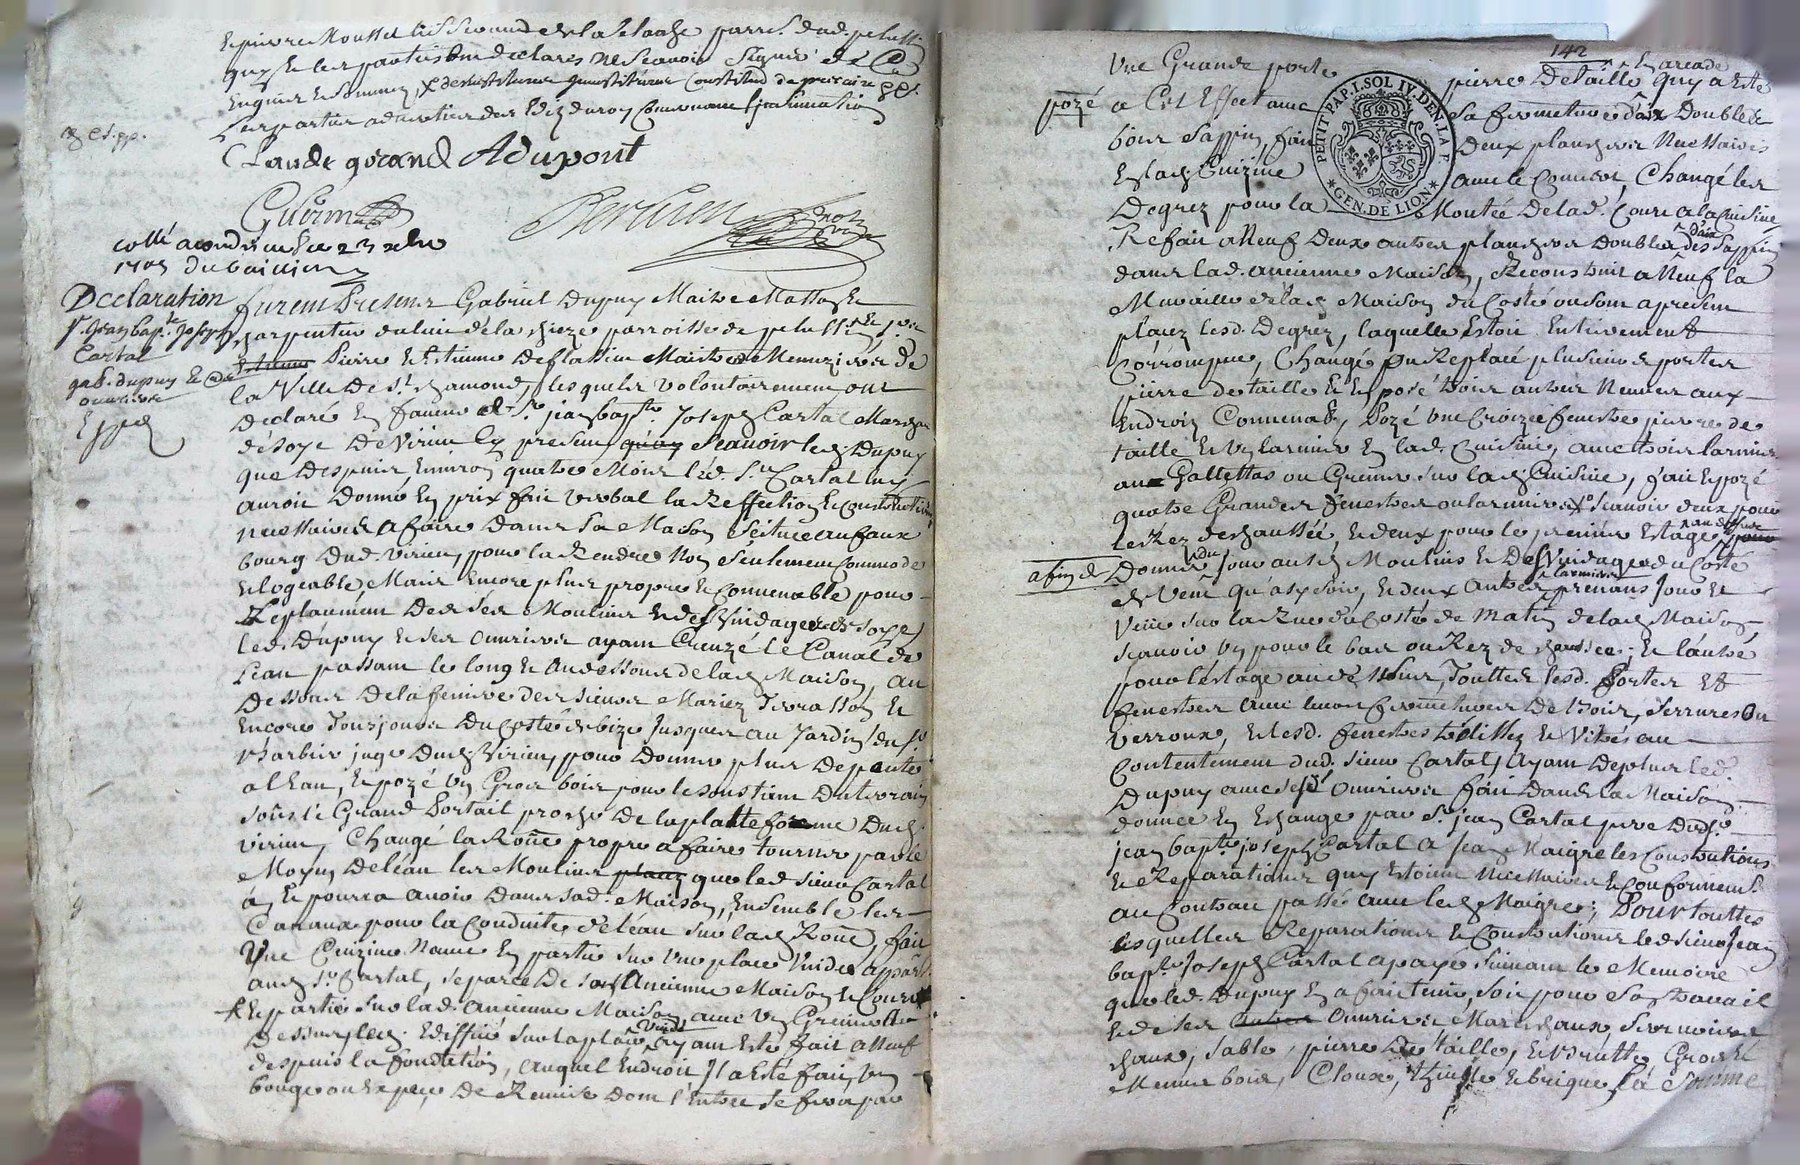 quy et les parties ont declarés ne scavoir signer de ce
Enquis et sommez
Claude girard Adupont
Guerin
collé a condrieu le 23 xbre
1705
Declaration
Sr. Jean bapte. Joseph
Cartal
gab. dupuy et
ouvriers
Exped
furent Presens Gabriel Dupuy Maitre Masson et
charpentier du lieu de la paroisse de
Pierre et Estienne Deflassieu Maitres Menuziers de
la Ville De St. chamond, lesquels volontairement ont
Declaré En faveur de Sr. jean bapte. Joseph Cartal Marchan
de soye De Virieu Cy present Scavoir led. Dupuy
que Despuis Environ quatre Mois led. Sr. Cartal luy
auroit Donné En prix fait verbal la Reffection Et Construction
necessaires a faire Dans sa Maison scituee au faux
bourg dud. virieu, pour la Rendre Non seulement commode
Et logeable Mais Encore plus propre et Convenable pour
de ses Moulins et desvuidages de soye,
led. Dupuy et ses ouvriers ayant Creuzé le Canal de
l'eau passant le long et au dessous de lad. Maison, au
Dessous De la feniere des sieurs Mariez Terrasson et
Encore Tousjours Du Costé de bize Jusques au Jardin du sr.
juge dud. Virieu, pour Donner plus De pente
a l'Eau, et pozé un Gros bois pour le soustient Du terrain
sous le Grand Portail proche De la platteforme Dud.
virieu, Changé la Roüe propre a faire tourner par le
Moyen De l'éau les Moulins que led. sieur Cartal
a, et pourra avoir Dans sad. Maison, Ensemble les
Canaux pour la Conduitte de l'éau sur lad. Roüe, fait
Une Cuizine Neuve En partie sur une place Vuide appart.
aud. Sr. Cartal, separée De son Ancienne Maison et Cour
Et partie sur lad. ancienne Maison, avec un Grenier au
Dessus, led. Ediffice sur la place vuide ayant Esté fait a Neuf
despuis la fondation, auquel Endroit Il a Esté fait un
bouge ou Espece De Remise Dont l'Entrée se fera par
142
Une Grande porte pierre De taille En arcade quy a Esté
pozé a Cet Effet avec sa fermeture d'aix Doubles
bois sappin, fait Deux planchers Necessaires
En lad. Cuizine avec le Couvert, Changé les
Degrez pour la Montée De lad. Cour a la Cuisine
Refait a Neuf Deux autres planchers Doubles d'aix des Sappin
dans lad. ancienne Maison, Reconstruit a Neuf la
Muraille de lad. Maison du Costé ou sont a present
placez lesd. Degrez, laquelle Estoit Entierement
Corrompue, Changé ou Replacé plusieurs portes
pierre de taille et En posé trois autres Neuves aux
Endroits Convenables, Pozé une Croizée fenestre pierre de
taille et un larmier En lad. Cuisine, avec trois larmiers
au Gallettas ou Grenier sur lad. Cuisine, fait Et pozé
quatre Grandes fenestres ou larmiers scavoir deux pour
le Rez dechaussée et deux pour le premier Estage au dessus
afin de Donner du Jour aud. Moulins et Desvuidages du Costé
de vent qu'a soir, et deux autres larmiers prenans Jour et
Veüe sur la Rue du Costé de Matin de lad. Maison
scavoir un pour le bas ou Rez de chaussée, et l'autre
pour l'éstage au dessus, Touttes lesd. Portes et
fenestres avec leurs fermetures De bois, serrures ou
verroux, et lesd. fenestres et Vitrés au
Contentement dud. sieur Cartal, Ayant Deplus led.
Dupuy avec sesd. ouvriers fait Dans la Maison
donnée En Echange par Sr. jean Cartal pere Dud. Sr.
jean bapte. joseph Cartal a Jean Maigre les Constructions
et Reparations quy Estoient Necessaires et Conformement
au Contrat passé avec led. Maigre; Pour touttes
lesquelles Reparations et Constructions led. sieur Jean
bapte. Joseph Cartal a payé suivant le Memoire
que led. Dupuy En a fait tenir, soit pour son travail
et de ses ouvriers Marechaux serruriers
chaux, sable, pierre De taille, et brutte Gros et
Menus bois, Cloux, thuille et brique, la somme
PETIT PAP. I. SOL IV. DEN. LA F.
GEN. DE LION